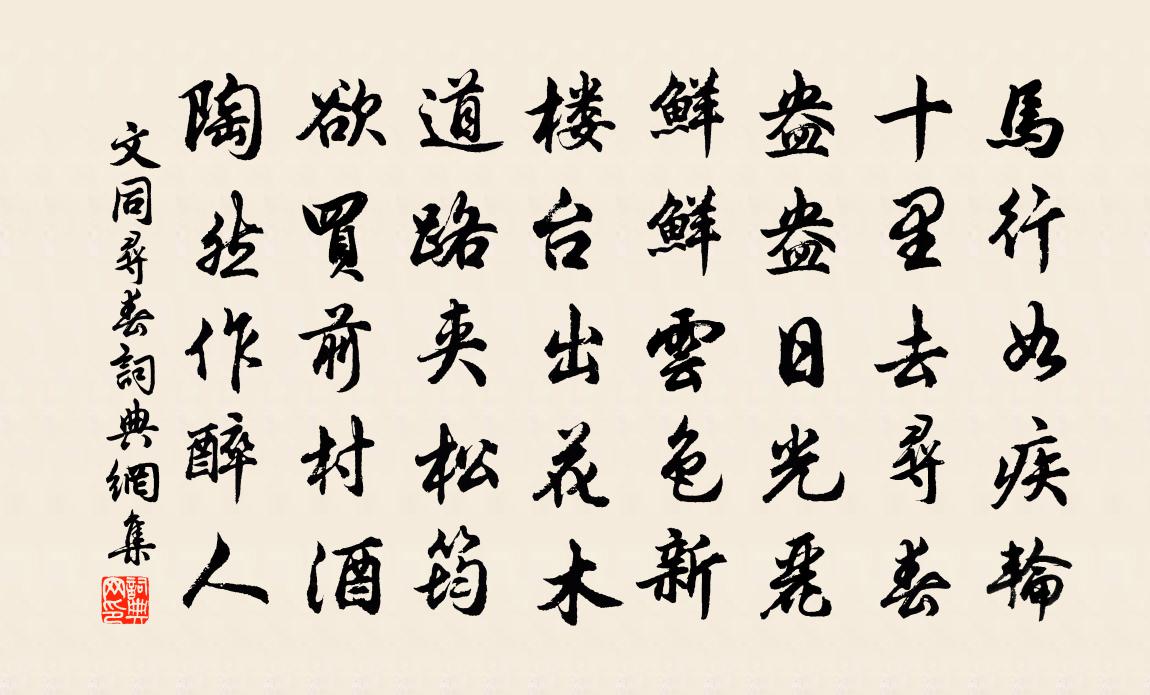 馬行如疾輪
十里去尋春
盎盎日光麗
鮮鮮雲色新
楼台出花木
道路夾松筠
欲買前村酒
陶然作醉人
文同尋春詞典網集
詞典网印